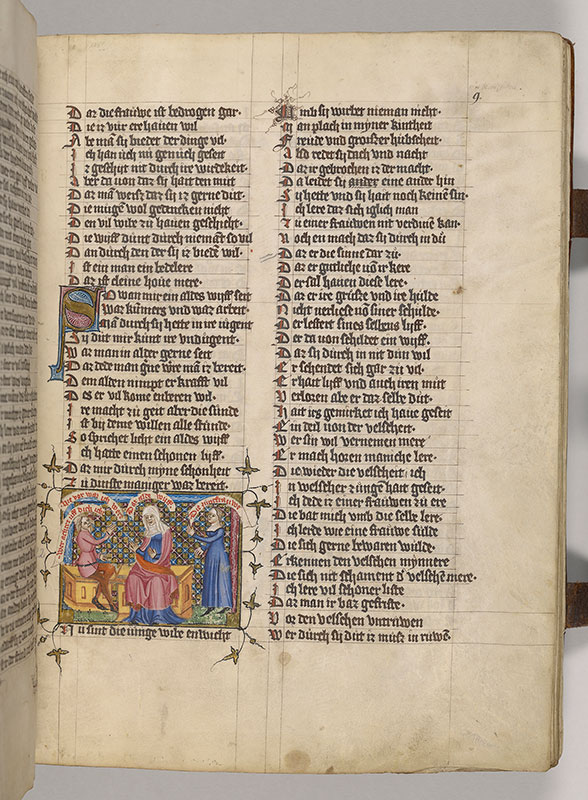 9
Daz die frauwe ist bedrogen gar·
Die iz vur ere hauen wil
man sy bieder der dinge vil·
Ich han uch nu genuch geseit
Iz geschyt nit durch ire wirdekeit·
Aber da von daz sy hait den mut
Daz man weiß daz sy iz gerne dut·
Die mugen wol gedencken nicht
Den vil wibe zu hauen geschicht·
Die wyff dunt durch nieman so vil
Dan durch den der sy wil·
Ist ein man ein bedelere
Daz ist cleine houe mere·
So wan mir ein aldes wyff seit
Waz kumers und waz arbeit
man durch sy hette in ir iugent
Zy dut mir kunt ir untugent·
Waz man in alder gerne seit
Daz dede man were man iz bereit·
Dem alden nimpt er krafft vil
Des er vil kome enberen wil·
Ire macht zu geit aber die sunde
Ist by deme willen alle stunde·
So sprichet licht ein aldes wyff
Ich hatte einen schonen lyff·
Daz mir durch myne schonheit
Zu dinste maniger waz bereit·
Nu sint die iunge wibe entwicht
Umb sy wirbet nieman nicht·
Man plach in myner kintheit
Freude und groszer hubscheit·
Also redet sy dach und nacht
Daz ir gebrochen iz der macht·
Da leidet sy ander eine ander hin
Sy hette und sy hait noch keinē sin·
Ich lere daz sich iglich man
Zu einer frauwen nit verdinē kan·
Noch en mach daz sy durch in du
Daz er die sinne dar zu·
Daz er gutliche uō ir kere
Er sal hauen diese lere·
Daz er ire grusze und ire hulde
Nicht verliese uō siner schulde·
Der lestert sines selbens lyff·
Der da von schildet ein wyff·
Daz sy durch in nit dun wil
Er schendet sich gar zu vil·
Er hait lyff und auch iren mut
Verlozen alse er daz selbe dut·
Hait irs gemirket ich haue geseit
Ein deil von der velscheit·
Wer sin wil vernemen mere
Er mach horen maniche lere·
Die wieder die velscheit ich
In welscher zungē hait geseit·
Ich dede iz einer frauwen zu ere
Die bat mich umb die selbe lere·
Ich lerde wie eine frauwe sulde
Die sich gerne bewaren wulde·
Erkennen den velschen mynnere
Die sich nit schament d' velschē mere·
Ich lere vil schoner liste
Daz man ir vaz gefriste·
Vor den velschen untruwen
Wer durch sy dut iz musz in ruwē·